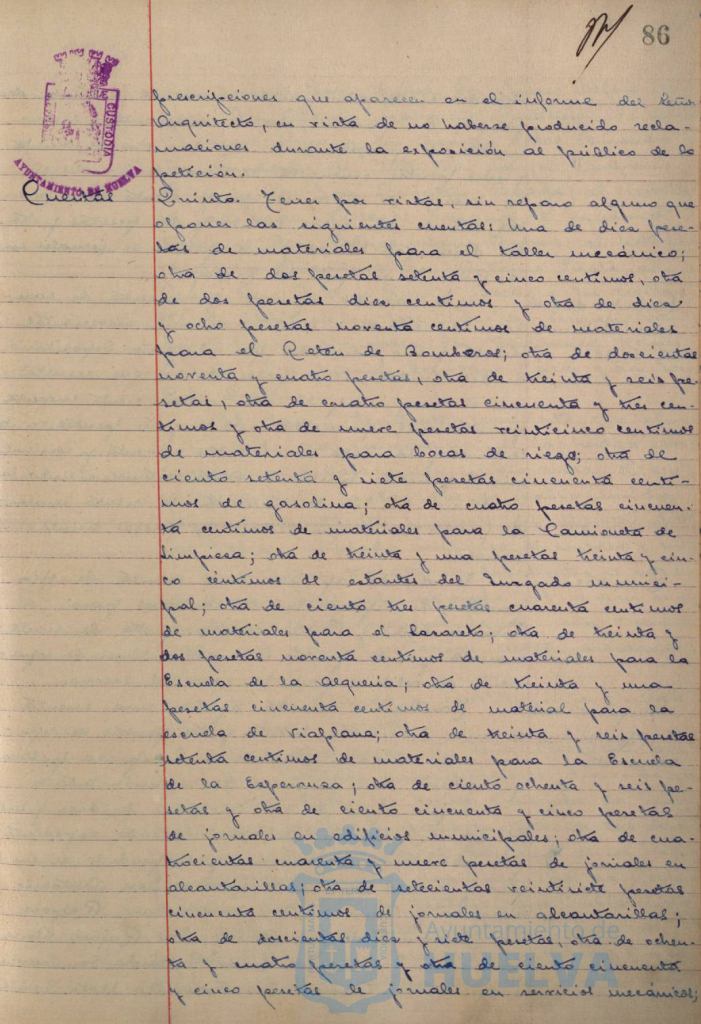 86
CUSTODIA
AYUNTAMIENTO DE HUELVA
prescripciones que aparecen en el informe del Señor
Arquitecto, en vista de no haberse producido recla-
maciones durante la exposición al público de la
petición.
Cuentas
Quinto. Tener por vistas, sin reparo alguno que
oponer las siguientes cuentas: Una de diez pese-
tas de materiales para el taller mecánico;
otra de dos pesetas setenta y cinco centimos, otra
de dos pesetas diez centimos y otra de diez
y ocho pesetas noventa centimos de materiales
para el Retén de Bomberos; otra de doscientas
noventa y cuatro pesetas, otra de treinta y seis pe-
setas, otra de cuatro pesetas cincuenta y tres cen-
timos y otra de nueve pesetas veinticinco centimos
de materiales para bocas de riego; otra de
ciento setenta y siete pesetas cincuenta centi-
mos de gasolina; otra de cuatro pesetas cincuen-
ta centimos de materiales para la Camioneta de
Limpieza; otra de treinta y una pesetas treinta y cin-
co céntimos de estantes del Juzgado munici-
pal; otra de ciento tres pesetas cuarenta centimos
de materiales para el Lazareto; otra de treinta y
dos pesetas noventa centimos de materiales para la
Escuela de la Alqueria; otra de treinta y una
pesetas cincuenta centimos de material para la
escuela de Viaplana; otra de treinta y seis pesetas
setenta centimos de materiales para la Escuela
de la Esperanza; otra de ciento ochenta y seis pe-
setas y otra de ciento cincuenta y cinco pesetas
de jornales en edificios municipales; otra de cua-
trocientas cuarenta y nueve pesetas de jornales en
alcantarillas; otra de setecientas veintisiete pesetas
cincuenta centimos de jornales en alcantarillas;
otra de doscientas diez y siete pesetas, otra de ochen-
ta y cuatro pesetas y otra de ciento cincuenta
y cinco pesetas de jornales en servicios mecánicos;
Ayuntamiento de
HUELVA